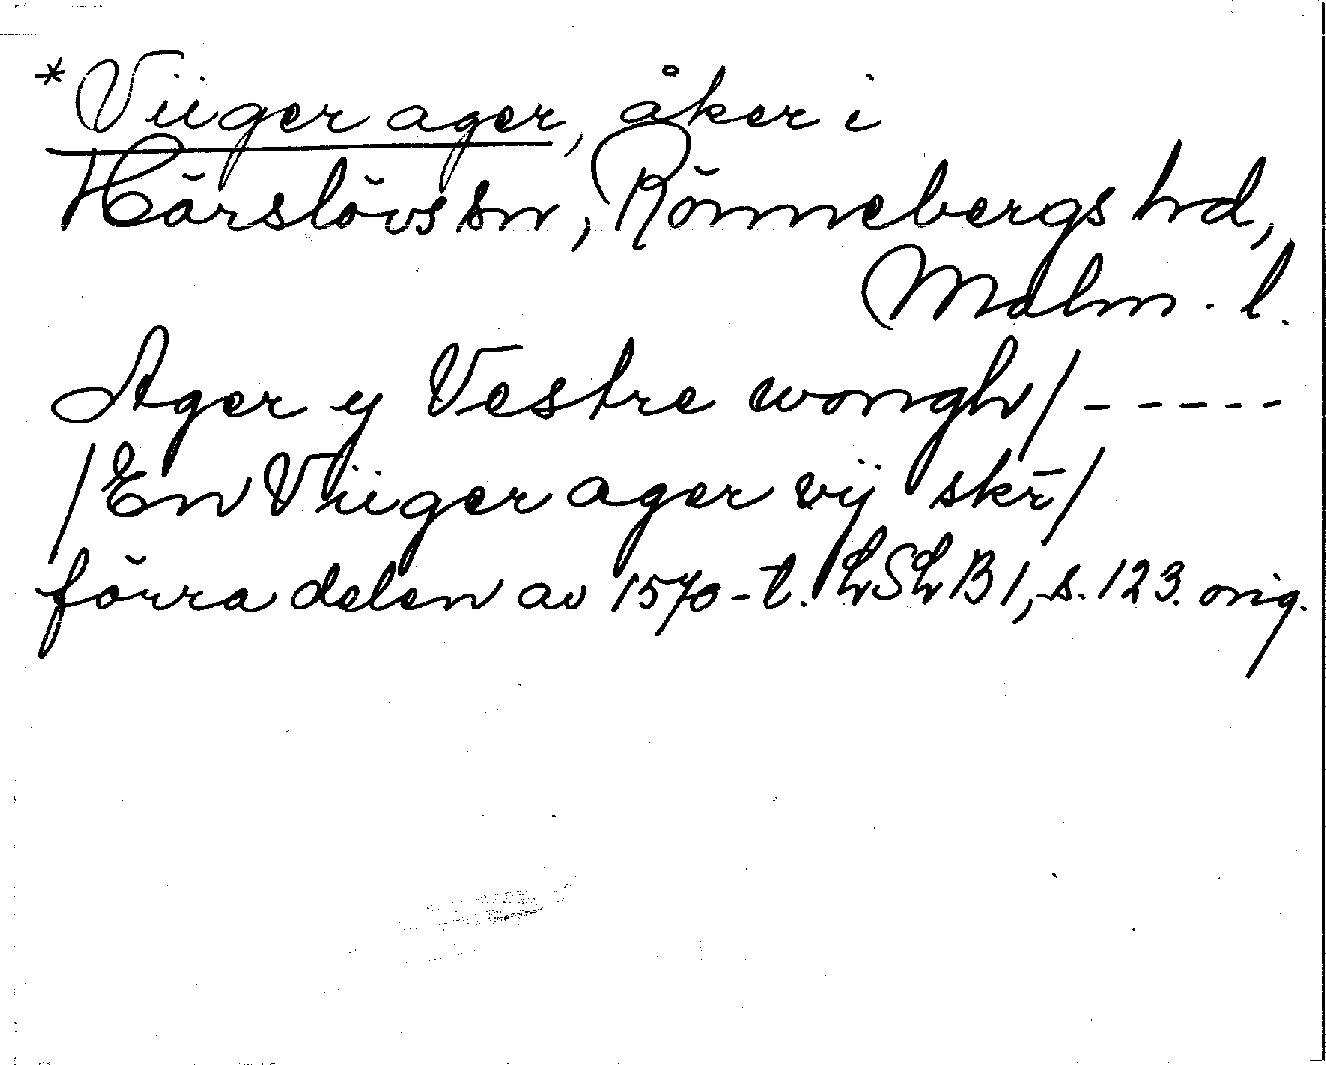 *Viiger ager, åker i
Härslövs sn, Rönnebergs hd,
Malm. l.
Ager y Vestre wongh/-----
/En Viiger ager vij skr̄/
förra delen av 1570-t. LSLB1, s. 123. orig.